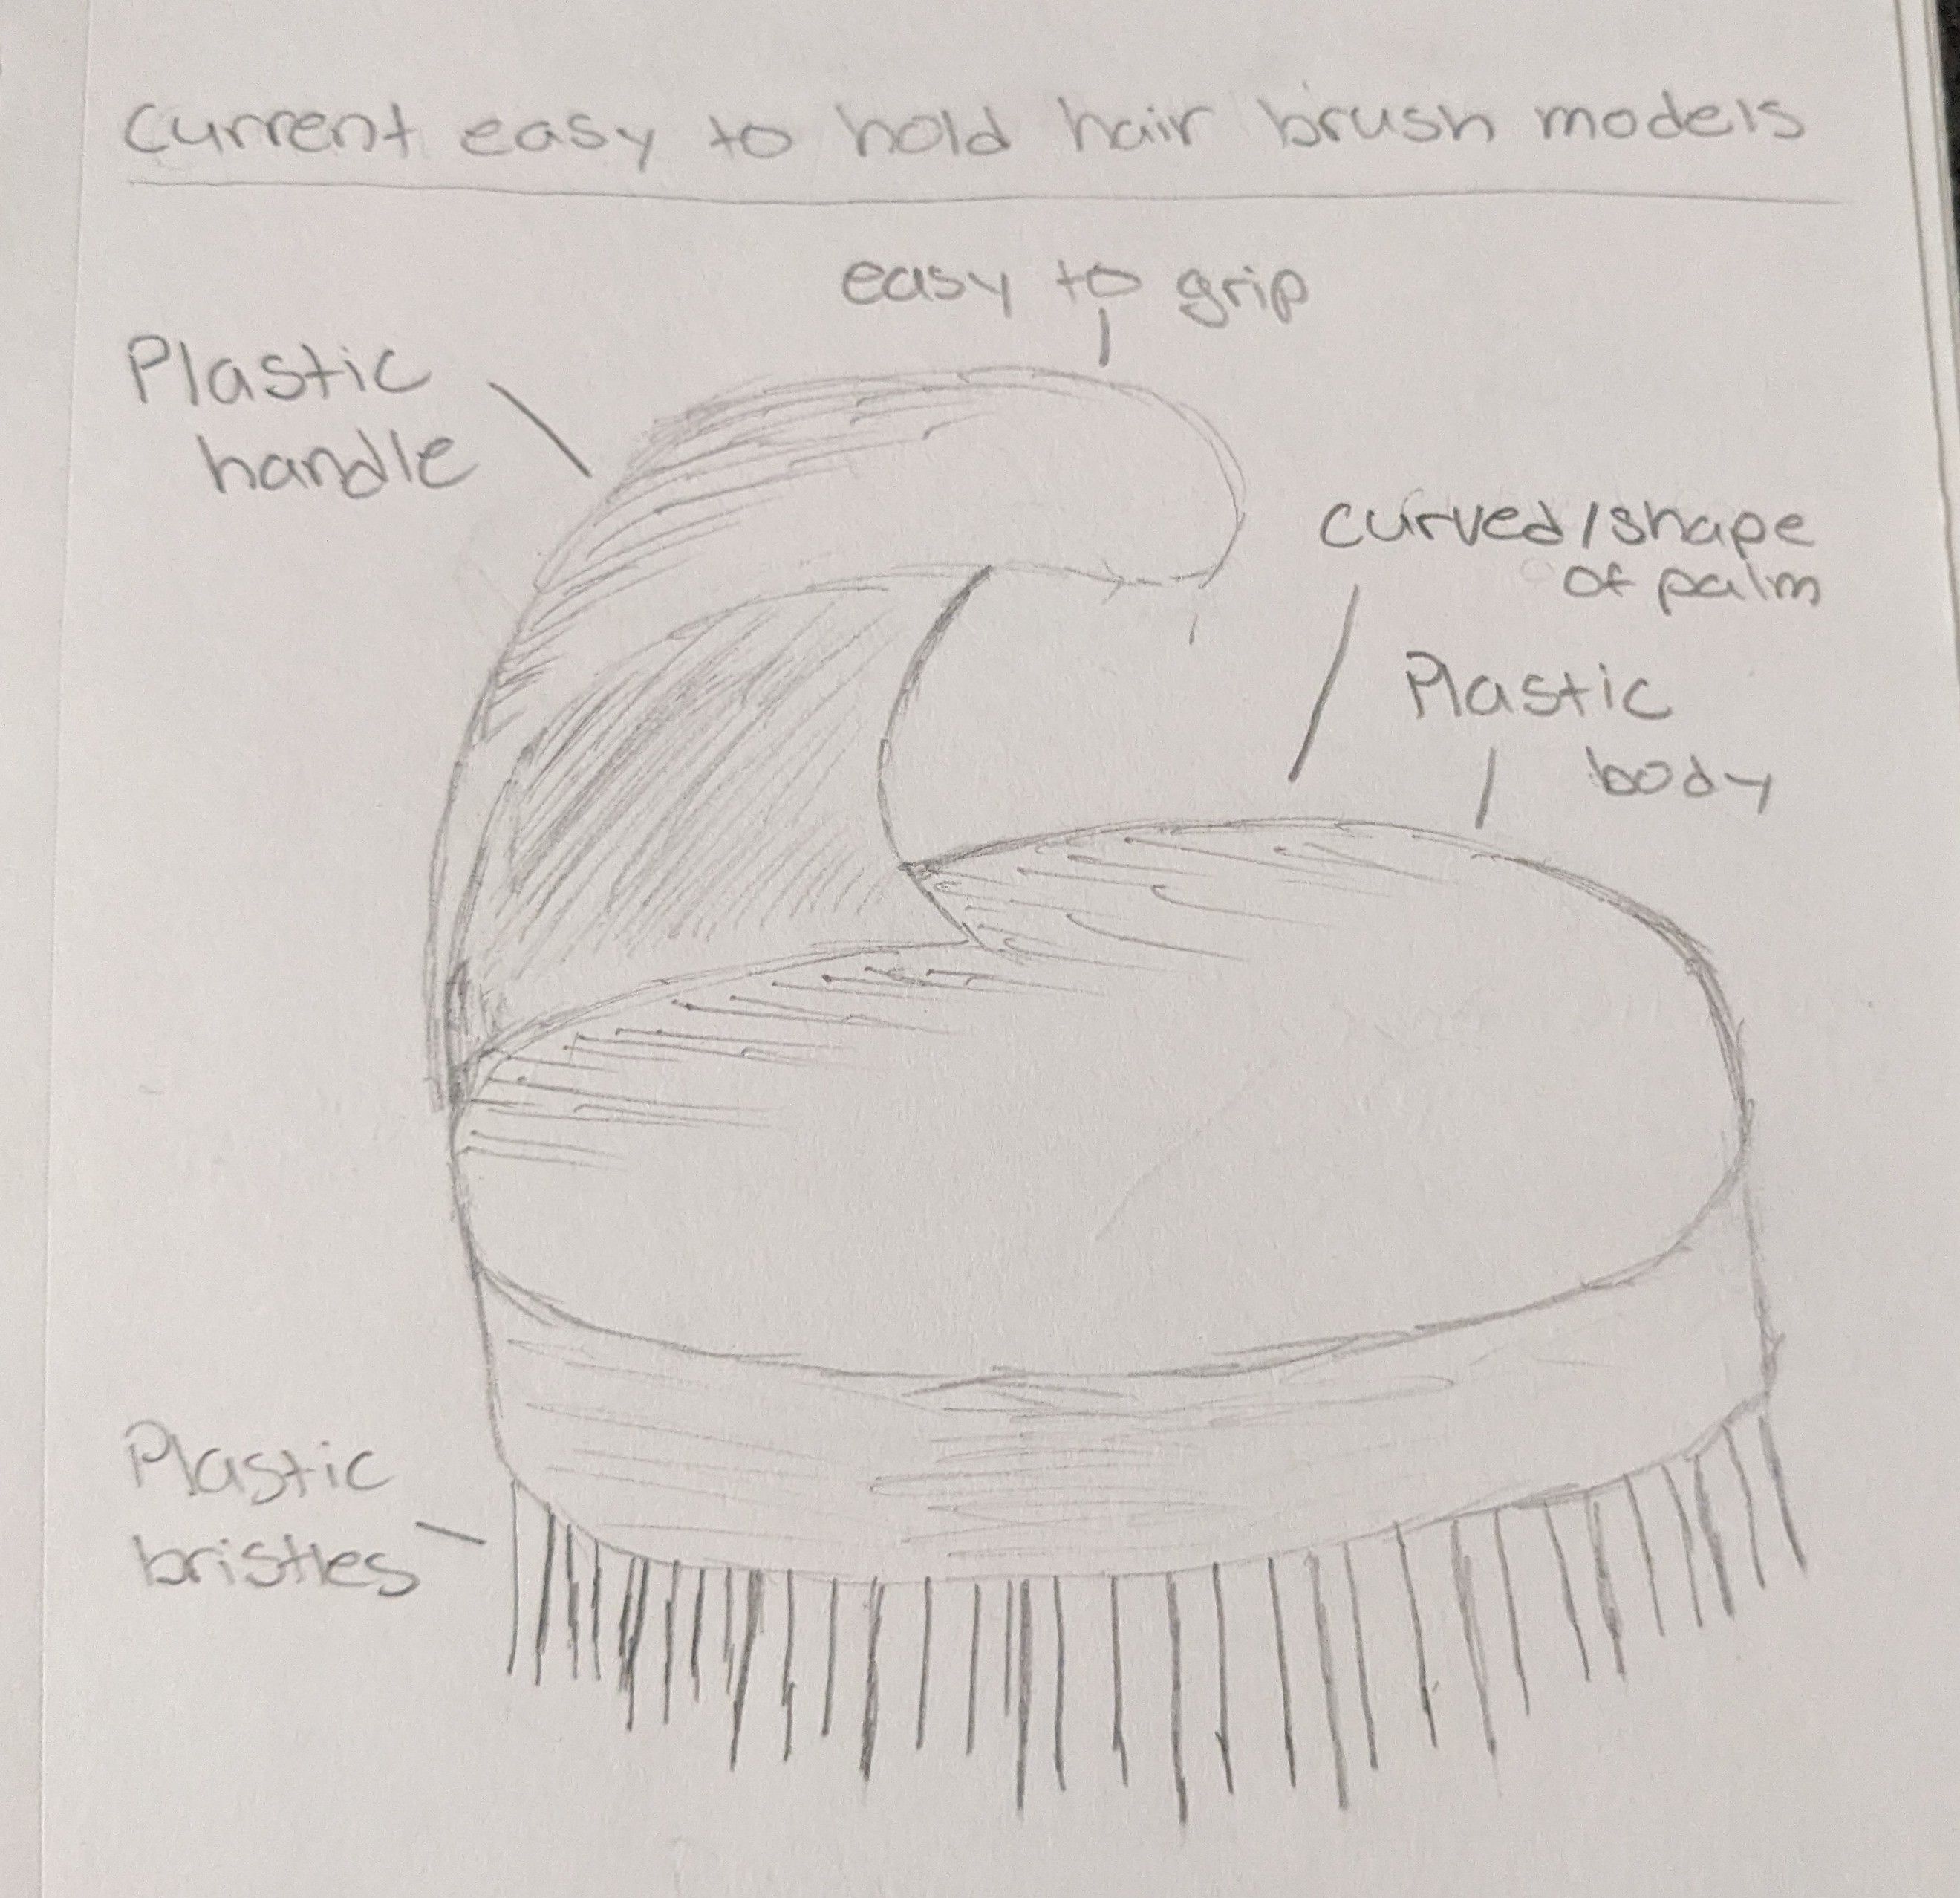 Current easy to hold hair brush models
easy to grip
Plastic
handle
curved/shape
of palm
Plastic
body
Plastic
bristles